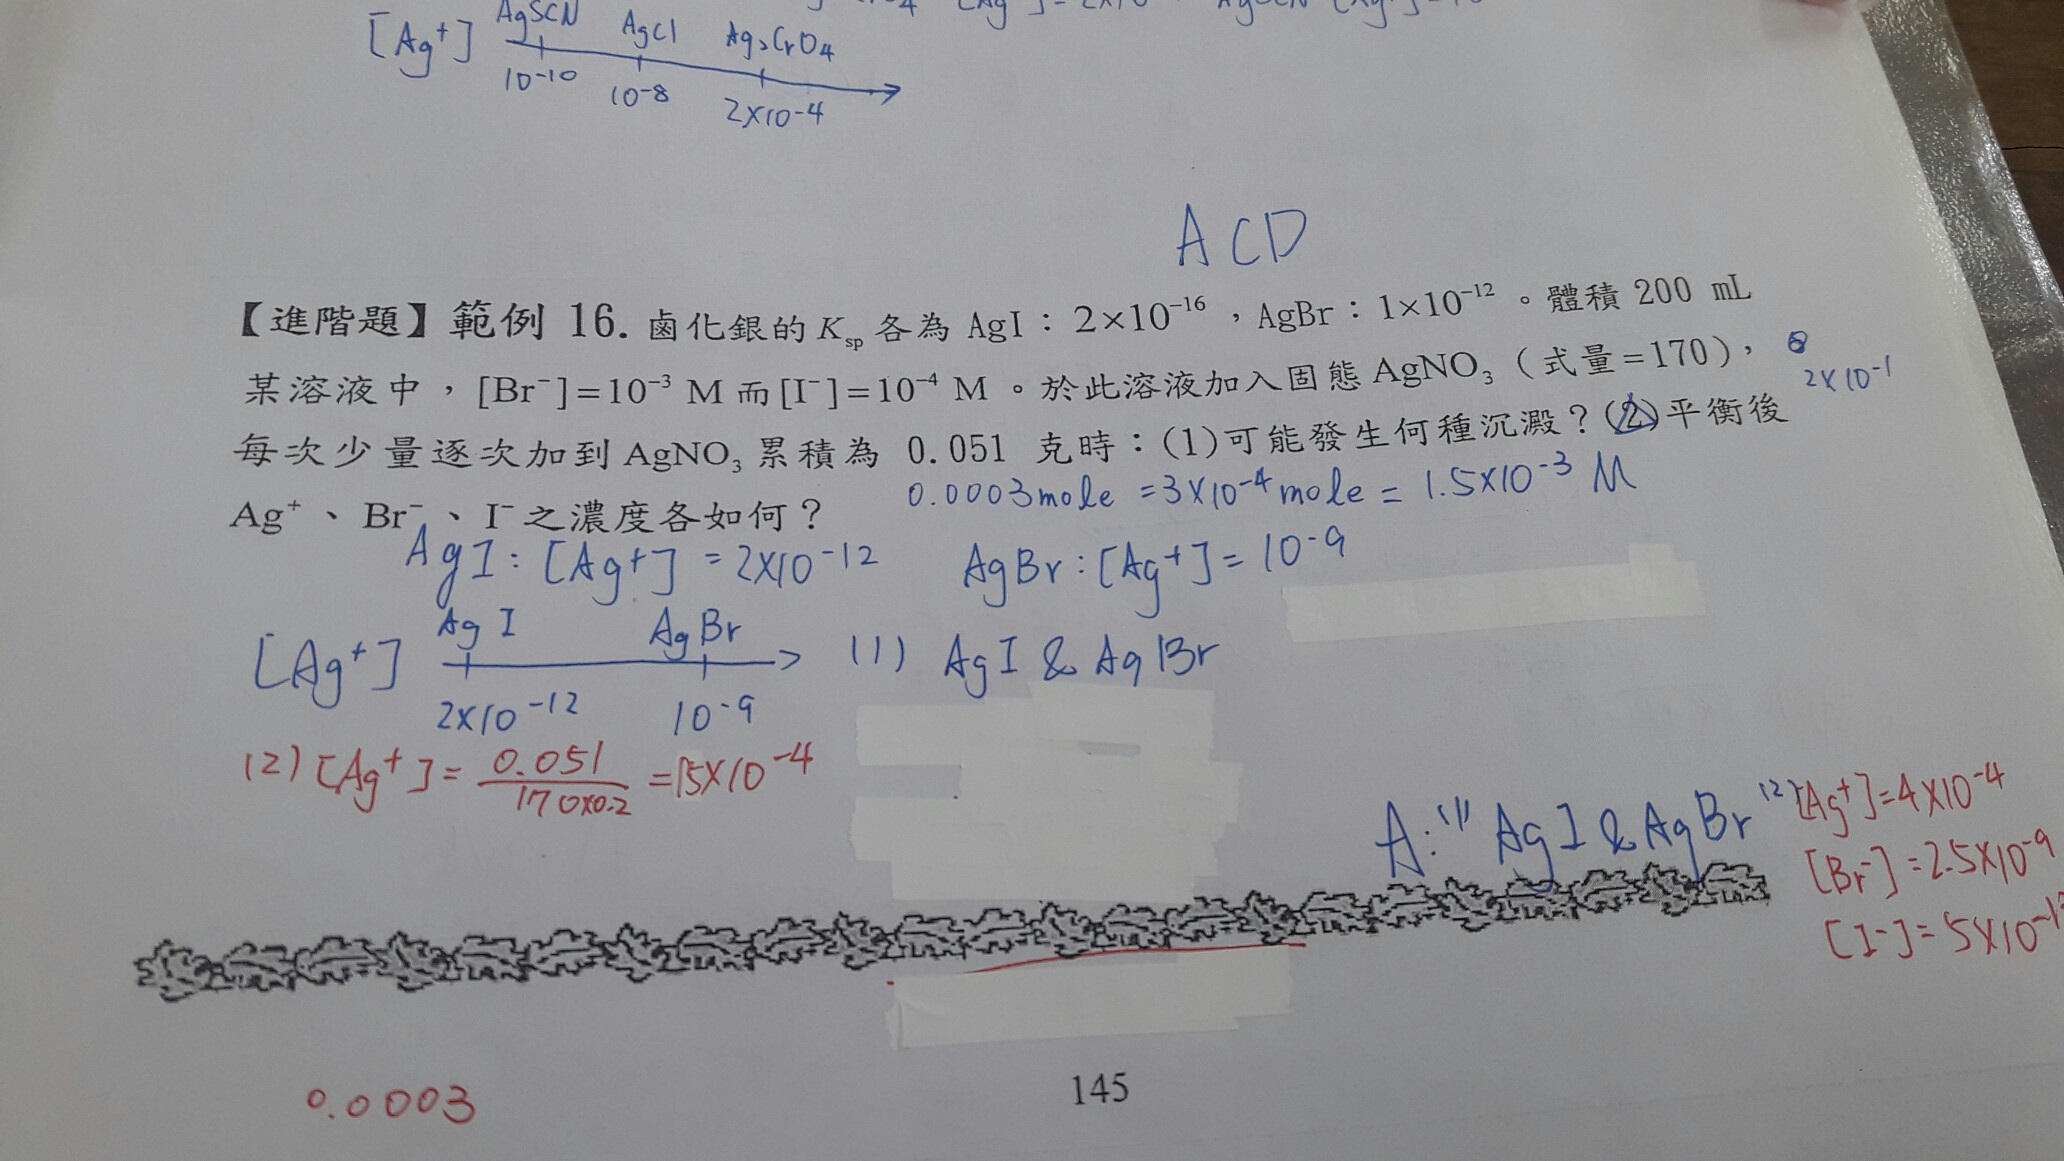 [Ag⁺] AgSCN AgCl Ag₂CrO₄
10⁻¹⁰ 10⁻⁸ 2×10⁻⁴
ACD
【進階題】範例 16. 鹵化銀的 Ksp 各為 AgI：2×10⁻¹⁶，AgBr：1×10⁻¹²。體積 200 mL
某溶液中，[Br⁻]=10⁻³ M 而 [I⁻]=10⁻⁴ M。於此溶液加入固態 AgNO₃（式量=170），
2×10⁻¹
每次少量逐次加到 AgNO₃ 累積為 0.051 克時：(1)可能發生何種沉澱？(2)平衡後
0.0003mole =3×10⁻⁴mole = 1.5×10⁻³ M
Ag⁺、Br⁻、I⁻之濃度各如何？
AgI：[Ag⁺] =2×10⁻¹² AgBr：[Ag⁺]= 10⁻⁹
[Ag⁺] AgI AgBr (1) AgI & AgBr
2×10⁻¹² 10⁻⁹
(2) [Ag⁺]= 0.051/170×0.2 =15×10⁻⁴
A：(1) AgI & AgBr (2) [Ag⁺]=4×10⁻⁴
[Br⁻]=2.5×10⁻⁹
145
0.0003